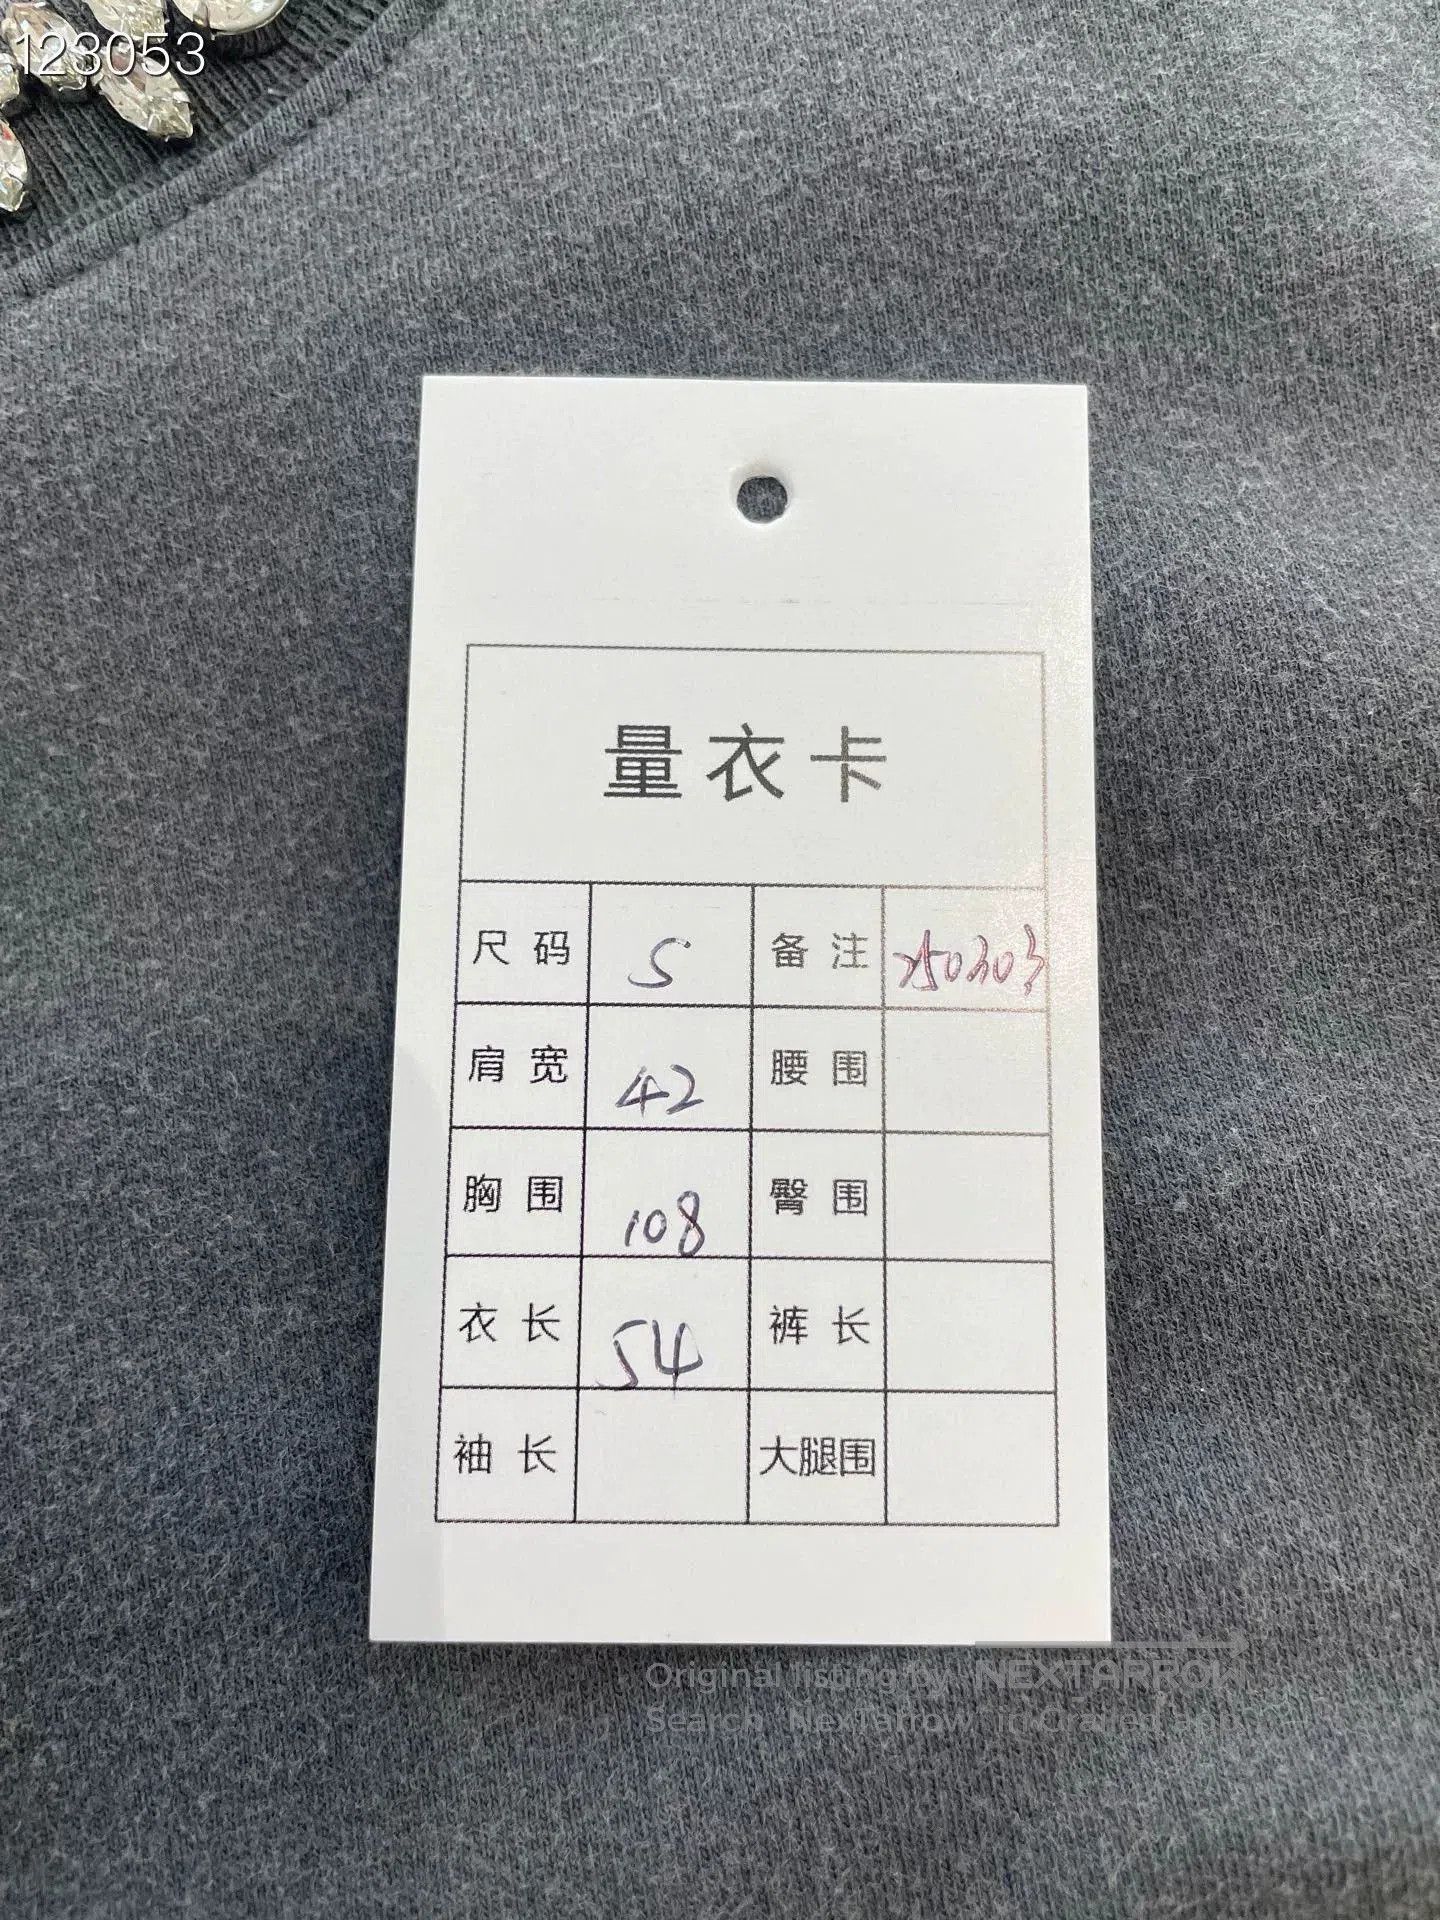 123053
量衣卡
尺码 S 备注 250303
肩宽 42 腰围
胸围 108 臀围
衣长 54 裤长
袖长 大腿围
Original listing by NEXTARROW
Search "NexTarrow" in Carued app